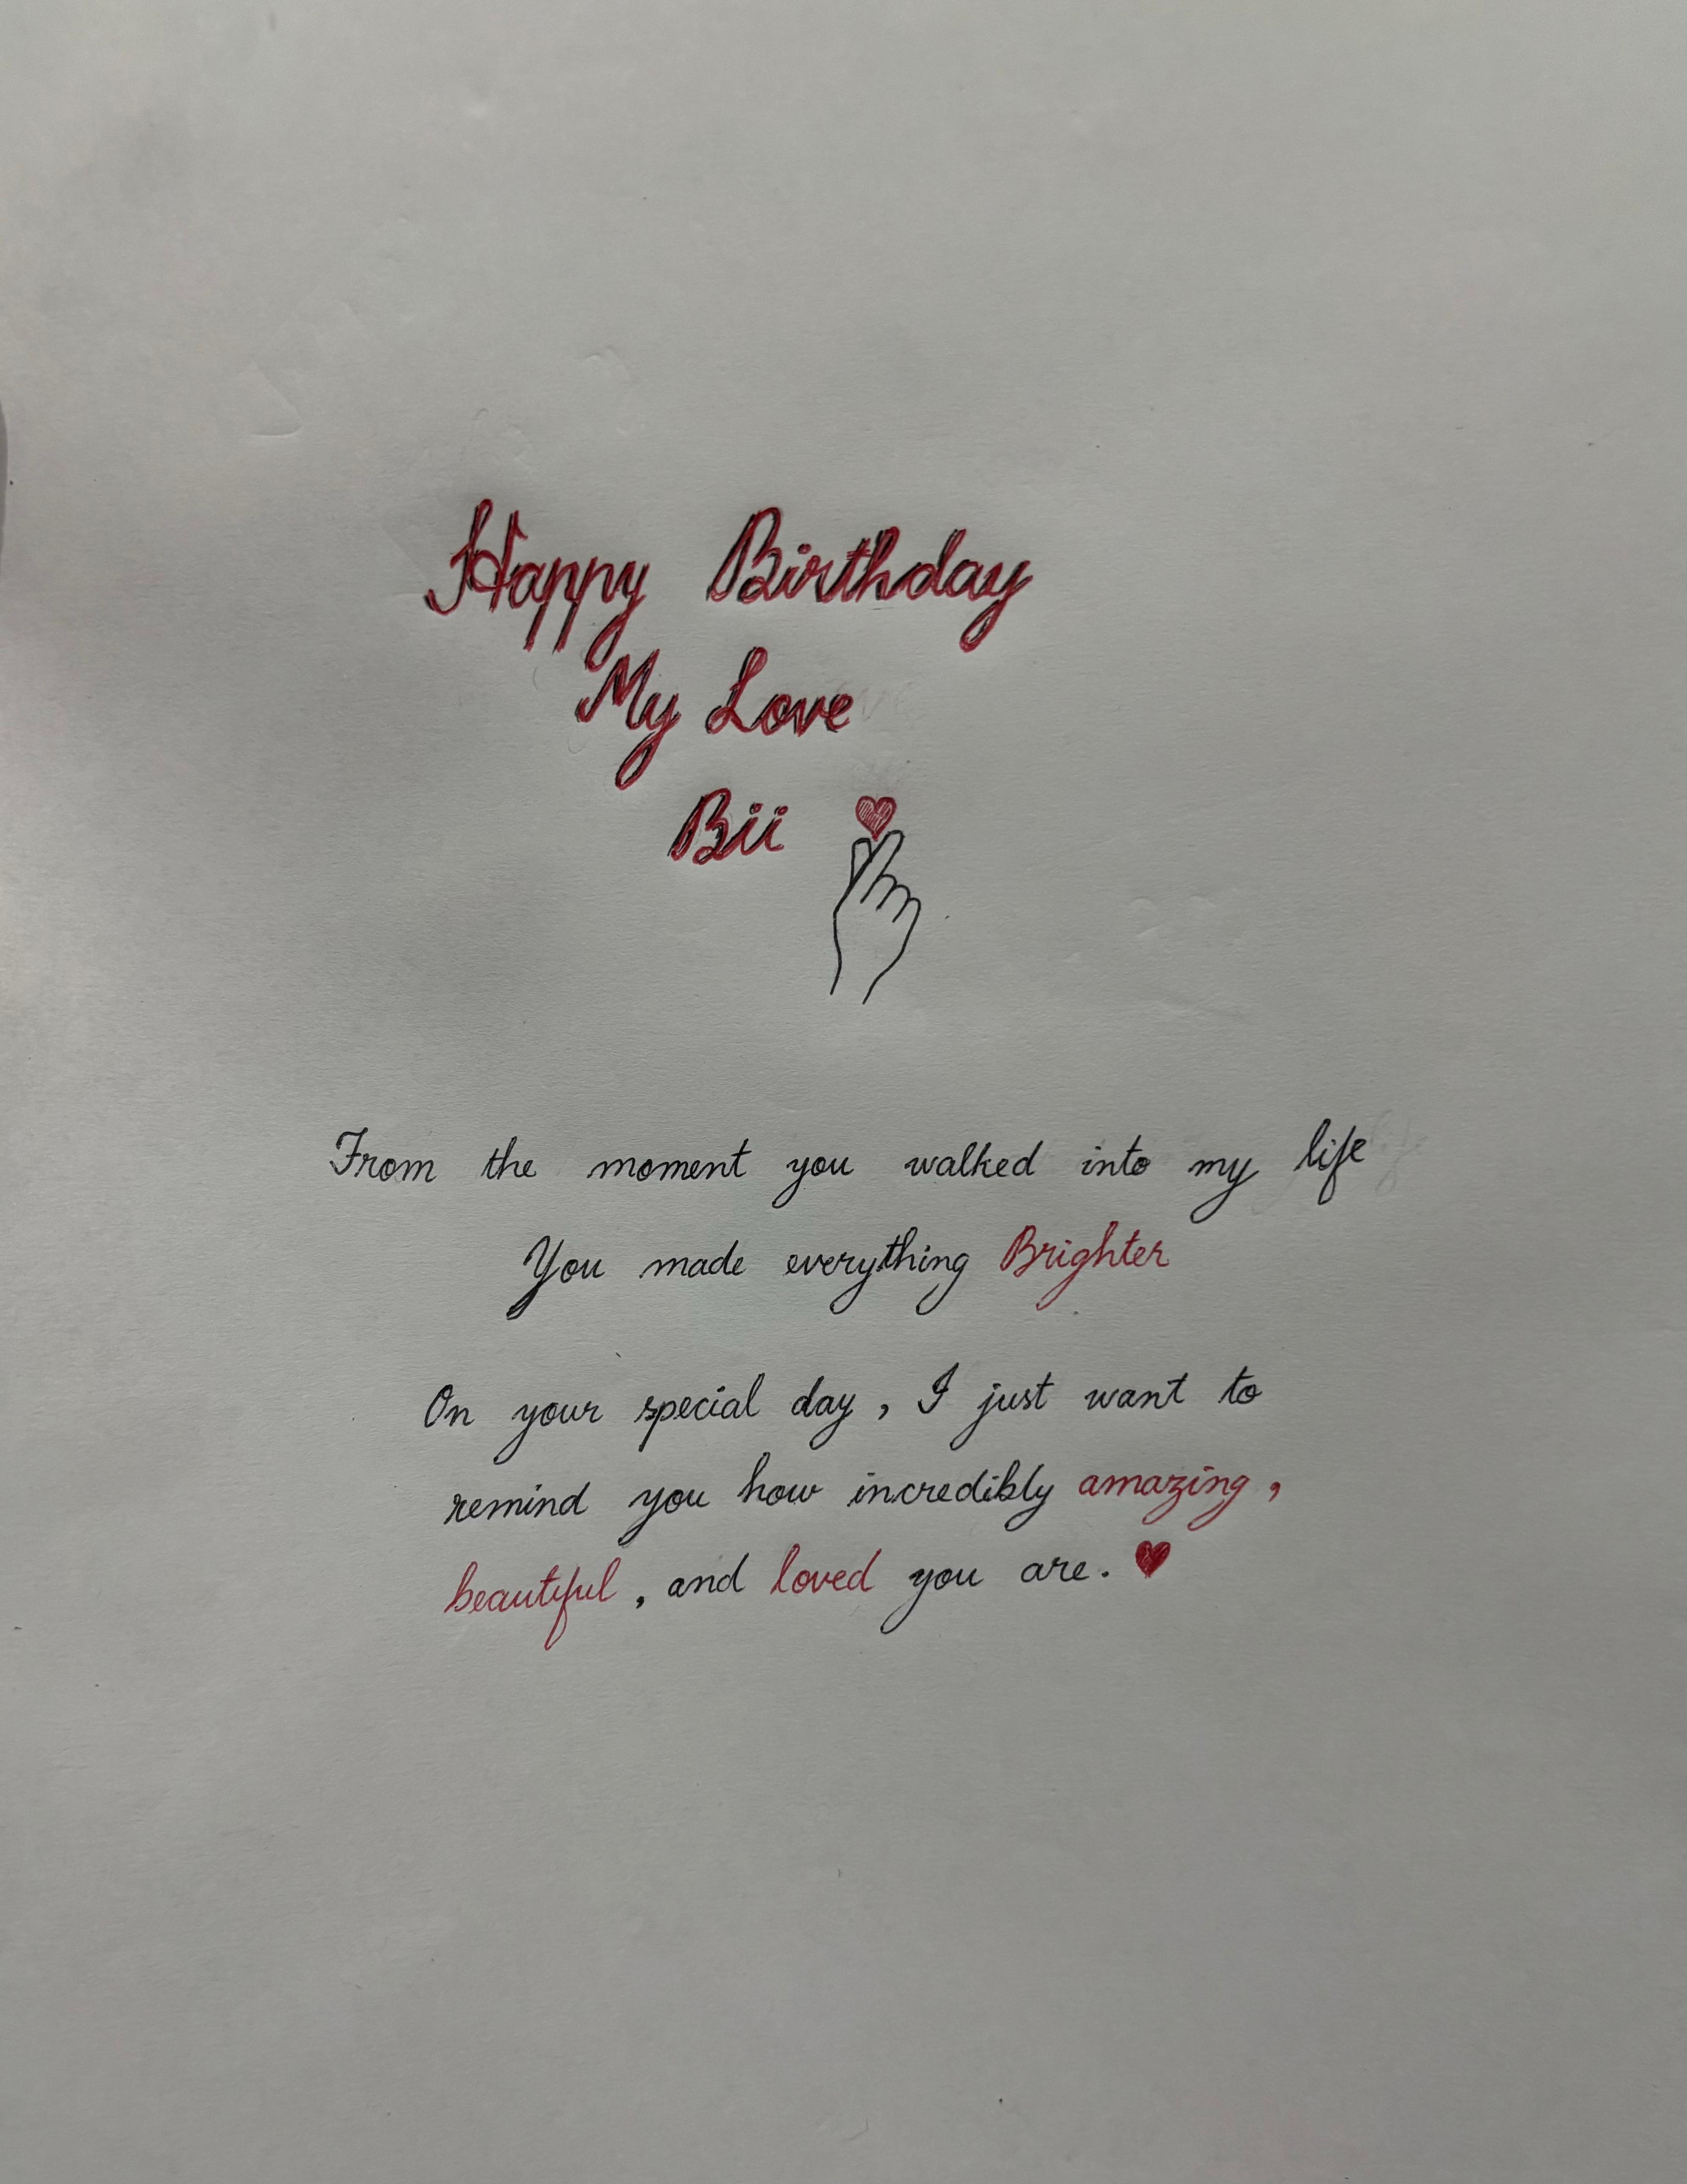 Happy Birthday
My Love
Bii
From the moment you walked into my life
You made everything Brighter
On your special day, I just want to
remind you how incredibly amazing,
beautiful, and loved you are. ♥